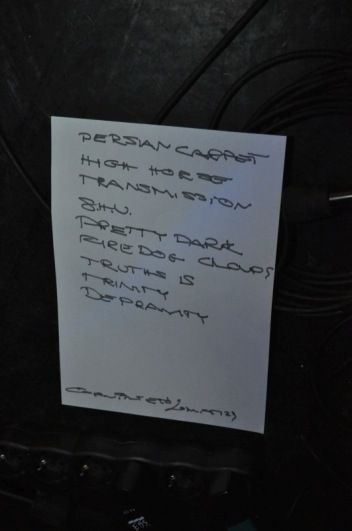 PERSIAN CARPET
HIGH HORSE
TRANSMISSION
S.H.U.
PRETTY DARK
FIREDOG CLOUDS
TRUTHS IS
TRINITY
DEPRAVITY